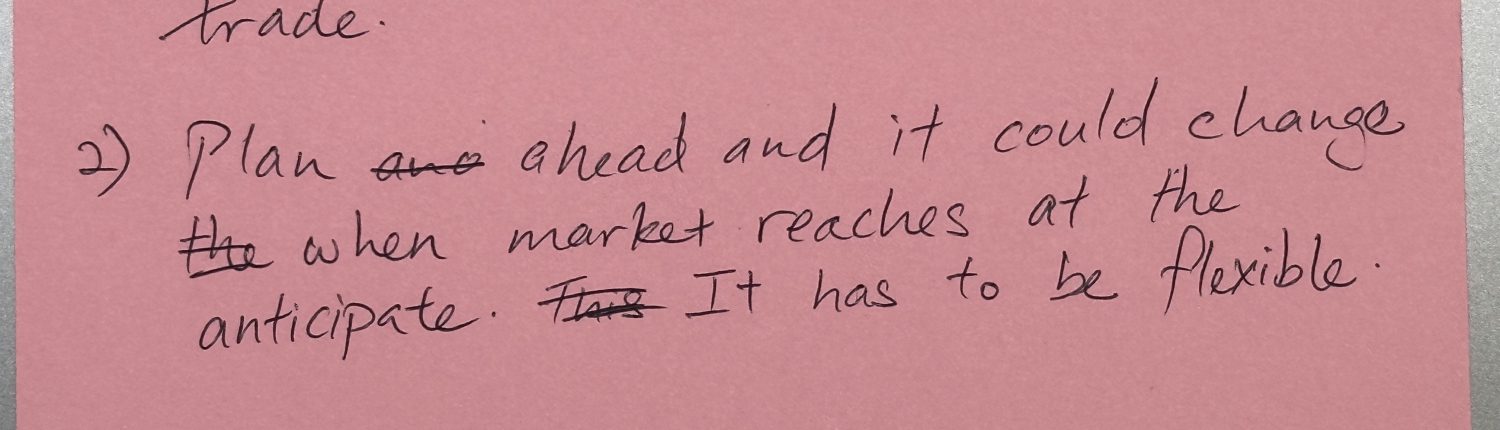 trade.
2) Plan ahead and it could change
when market reaches at the
anticipate. It has to be flexible.